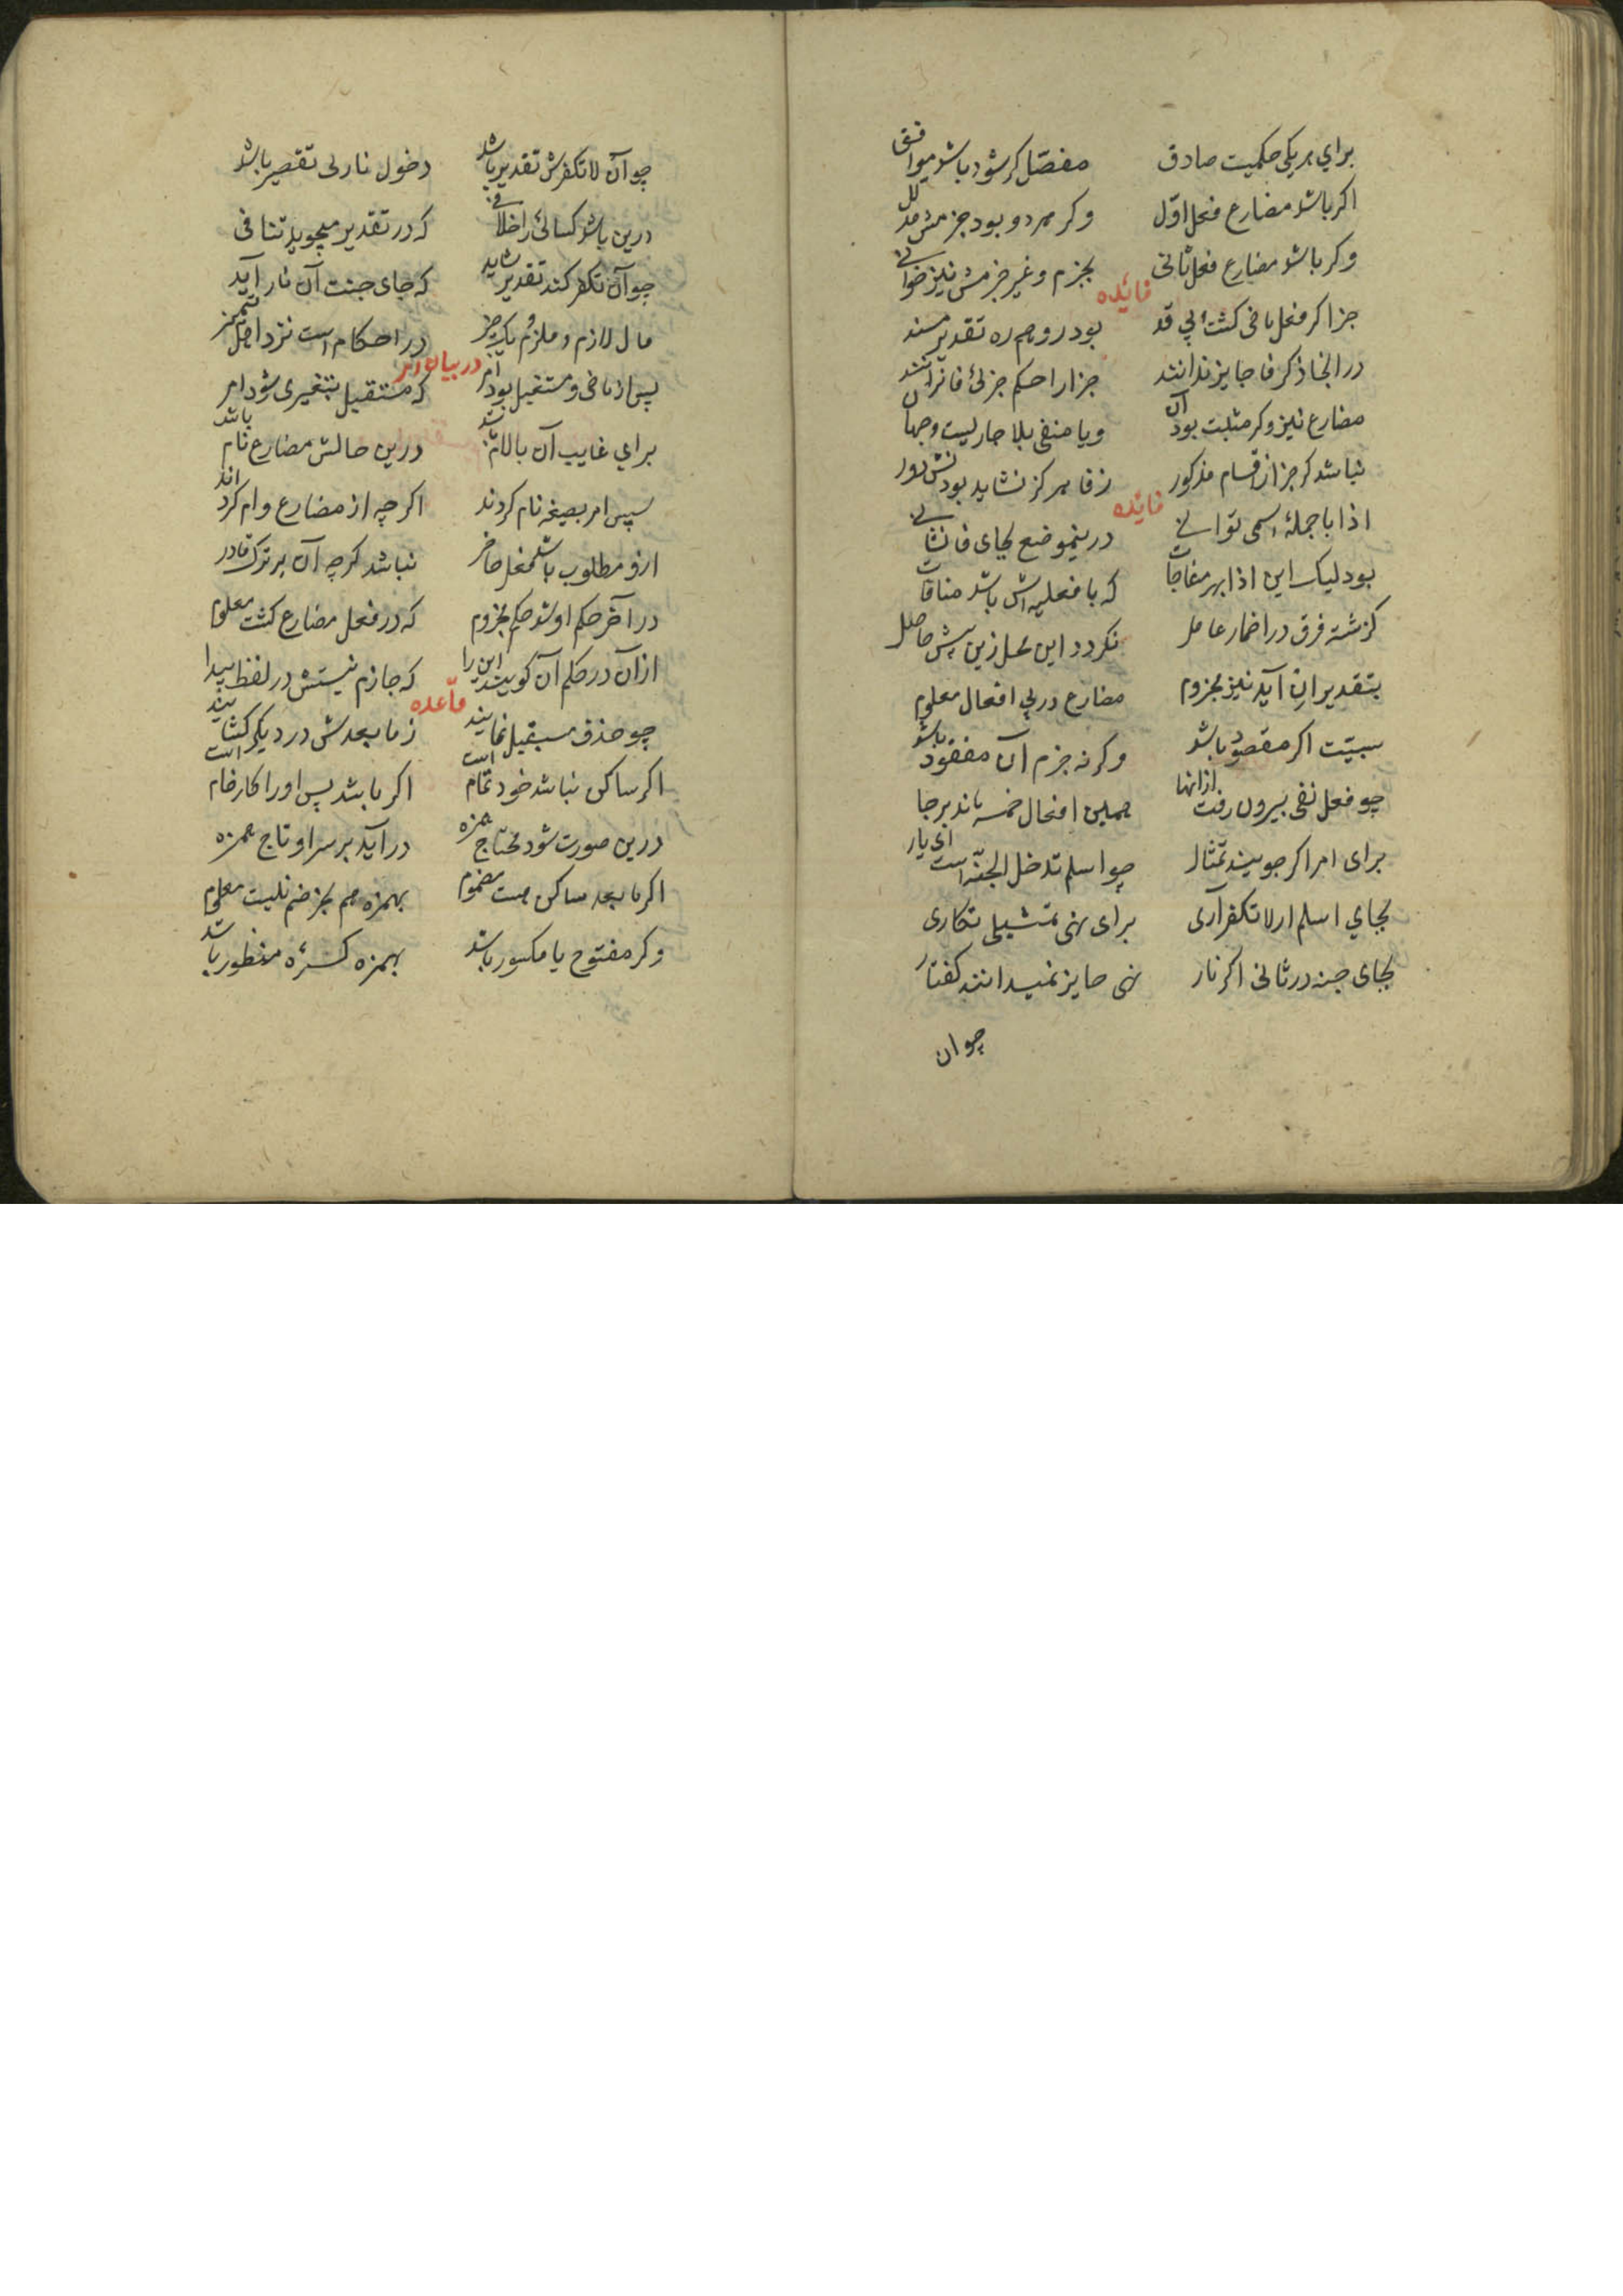 برای هر یکی حکمیت صادق مفصل گر شود باشد موافق
اگر باشد مضارع فعل اوّل وگر هر دو بود جزمش مدلل
وگر باشد مضارع فعل ثانی بجزم و غیر جزمش نیز خوانی
فائده
جزا گر فعل ماضی گشت بی قد بود رو هم ره تقدیر مسند
در انجا ذکر فا جایز ندانند جزا را حکم جزئ فا نرانند
مضارع نیز وگر مثبت بود آن ویا منفی بلا جاریست وجهان
نباشد گر جز از اقسام مذکور ز فا هرگز نشاید بودنش دور
فائده
اذا با جملهٔ اسمی توانی درینموضع بجای فا نشانی
بود لیک این اذا بهر مفاجات که با فعلیه اش باشد منافات
گزشته فرق در اضمار عامل نگردد این محل زین پیش حاصل
بتقدیر ان آید نیز مجزوم مضارع در پی افعال معلوم
سببیّت اگر مقصود باشد وگرنه جزم آن مفقود باشد
چو فعل نفی بیرون رفت ازانها همین افعال خمسه ماند برجا
برای امر اگر جویند تمثال چو اسلم تدخل الجنّه است ای یار
بجای اسلم ار لا تکفر آری برای نهی تمثیلی نگاری
بجای جنه در ثانی اگر نار نهی جایز نمیدانند گفتار
چوان
چو آن لا تکفرش تقدیر باشد دخول نار بی تقصیر باشد
درین باشد کسائی را خلافی که در تقدیر میجوید تنافی
چو آن تکفر کند تقدیر شاید که جای جنت آن نار آید
مال لازم و ملزوم یک چیز در احکام است نزد اهل تمییز
در بیان امر
پس از ماضی و مستقبل بود امر که مستقبل بتغییری شود امر
برای غایب آن بالام باشد درین حالش مضارع نام باشد
سپس امر بصیغه نام کردند اگرچه از مضارع وام کردند
ازو مطلوب باشد فعل حاضر نباشد گرچه آن بر ترک قادر
در آخر حکم او شد حکم مجزوم که در فعل مضارع گشت معلوم
ازان در حکم آن گویند این را که جازم نیستش در لفظ پیدا
قاعده
چو حذف مستقبل نمایند ز ما بعدش در دیگر گشایند
اگر ساکن نباشد خود تمام است اگر باشد پس او را کار خام است
درین صورت شود محتاج همزه در آید بر سر او تاج همزه
اگر ما بعد ساکن هست مضموم بهمزه هم بجز ضم نیست معلوم
وگر مفتوح یا مکسور باشد بهمزه کسرهٔ منظور باشد